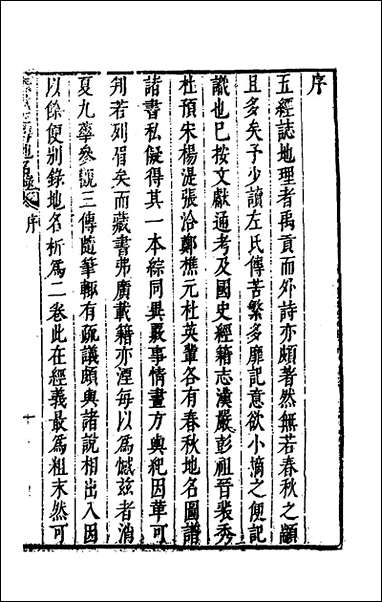 序
五經誌地理者禹貢而外詩亦頗著然無若春秋之顓
且多矣予少讀左氏傳苦繁多靡記意欲小滴之便記
識也已按文獻通考及國史經籍志漢嚴彭祖晉裴秀
杜預宋楊湜張洽鄭樵元杜英輩各有春秋地名圖譜
諸書私儗得其一本綜同異覈事情畫方輿紀因革可
刋若列眉矣而藏書弗廣載籍亦湮每以為憾玆者消
夏九華參觀三傳隨筆輙有疏議頗與諸說相出入因
以餘便别錄地名析為二卷此在經義最為粗末然可
地名錄
序